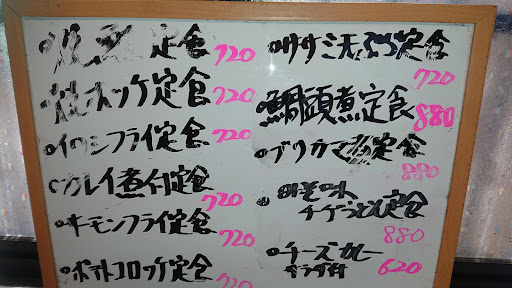 定食 720
焼ホッケ定食 720
イワシフライ定食 720
カレイ煮付定食
720
サーモンフライ定食
720
ポテトコロッケ定食
720
ササミ天ぷら定食
720
鯛頭煮定食
880
ブリカマ定食
880
味
チゲうどん定食
880
チーズカレー
サラダ付 620